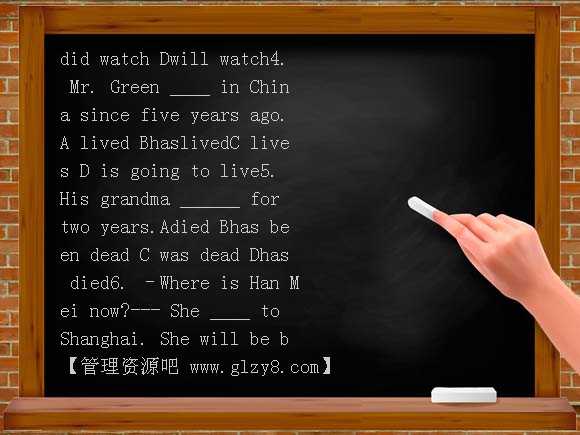 did watch Dwill watch4.
Mr. Green ____ in Chin
a since five years ago.
A lived BhaslivedC live
s D is going to live5.
His grandma ______ for
two years.Adied Bhas be
en dead C was dead Dhas
died6. －Where is Han M
ei now?--- She ____ to
Shanghai. She will be b
【管理资源吧 www.glzy8.com】